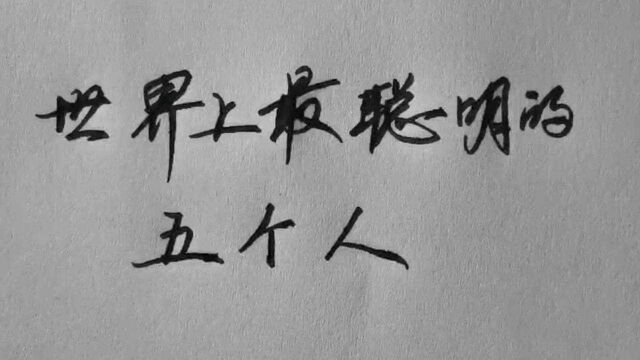 世界上最聪明的
五个人